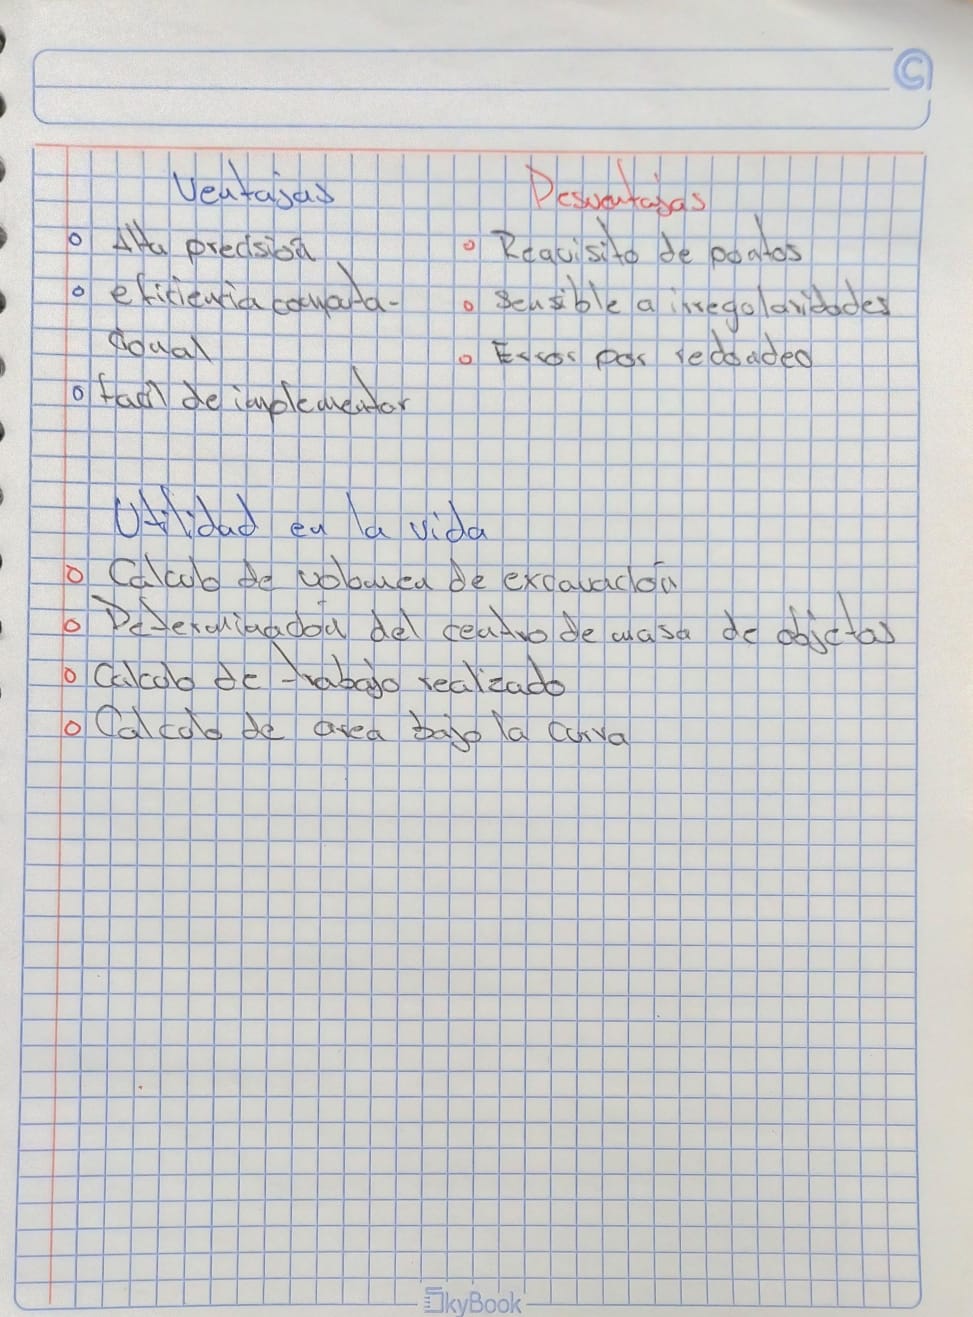 ©
Ventajas
Desventajas
o Alta precisión
o eficiencia computa-
cional
o facil de implementar
o Requisito de puntos
o Sensible a irregularidades
o Error por redondeo
Utilidad en la vida
o Calculo de volumen de excavación
o Determinación del centro de masa de objetos
o Calculo de trabajo realizado
o Calculo de area bajo la curva
SkyBook